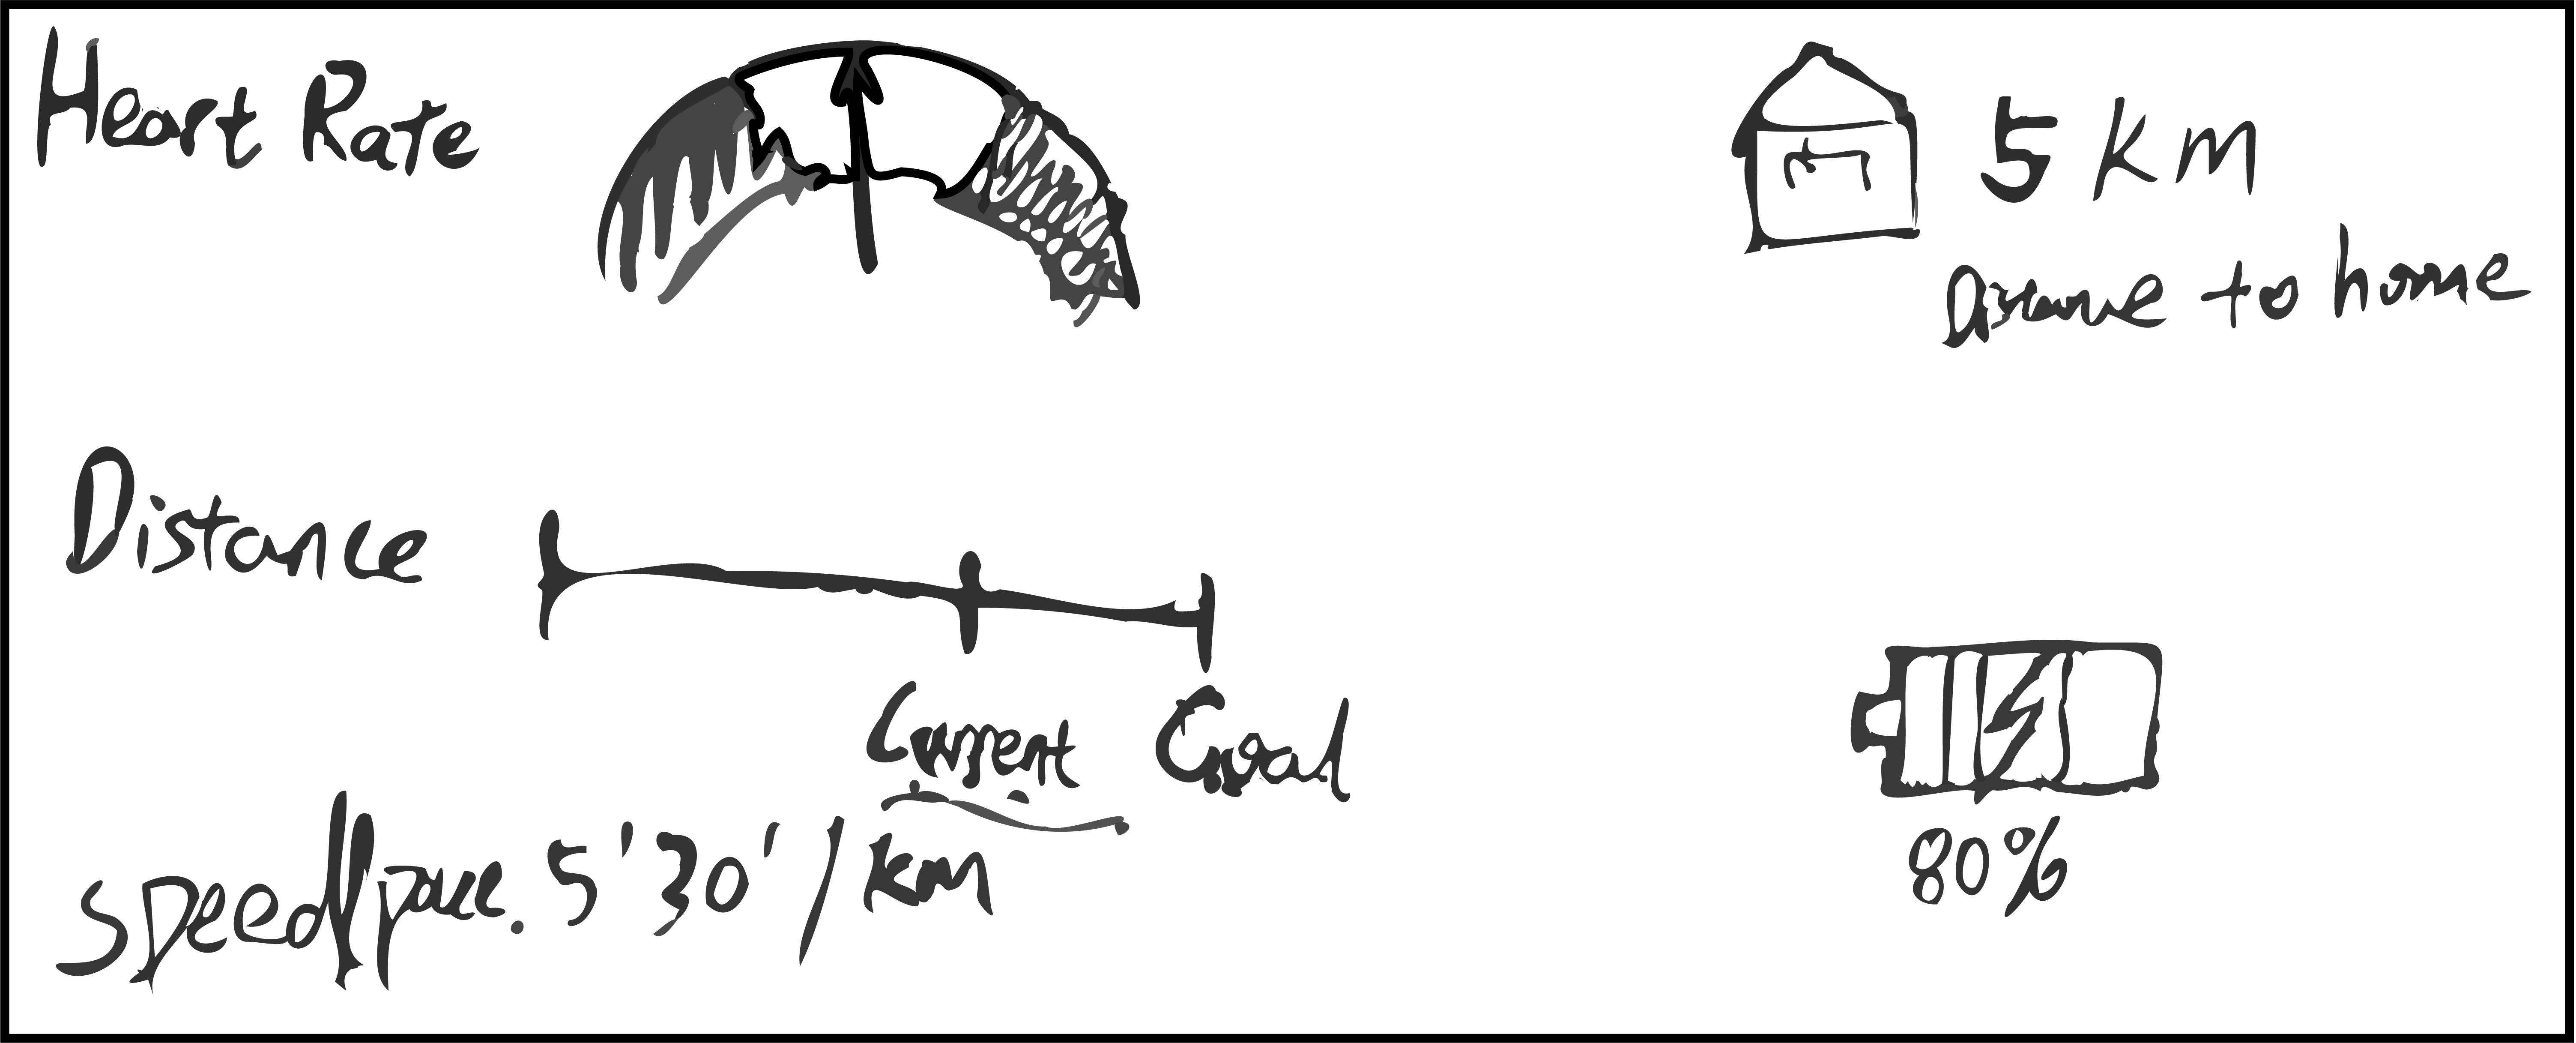 Heart Rate
5 km
Distance to home
Distance
Current Goal
Speed/pace. 5'30'/km
80%